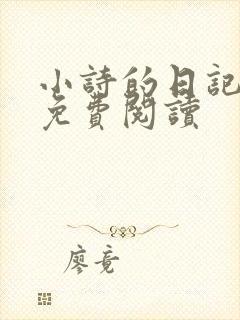 小詩的日記
免費閱讀
廖竟